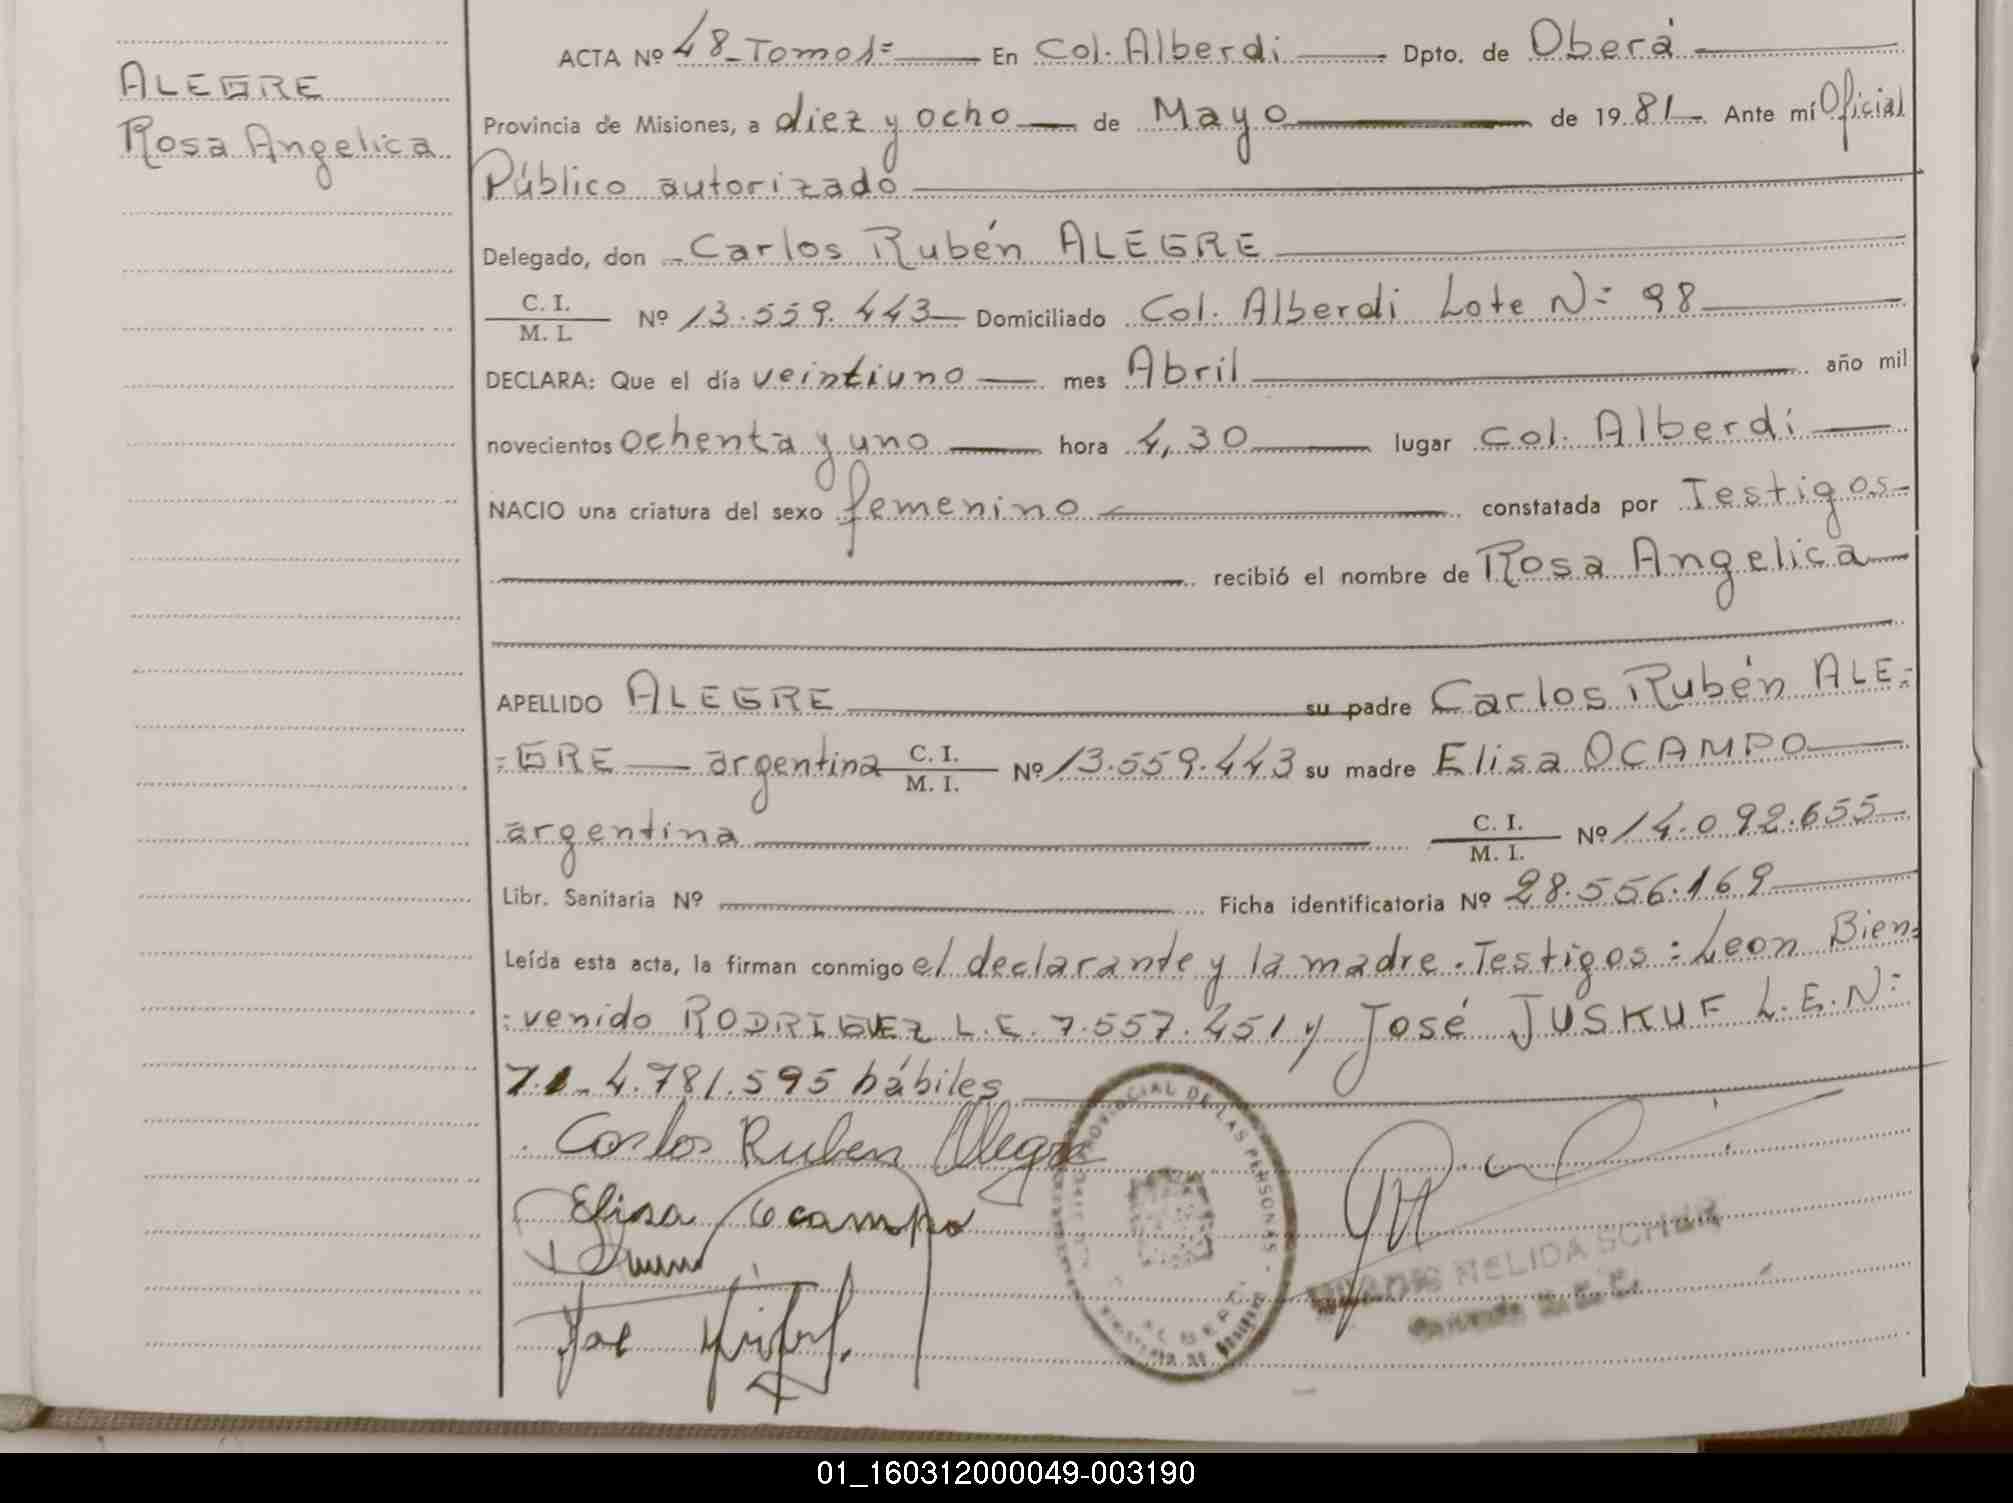 ALEGRE
Rosa Angelica
ACTA Nº 48-Tomo 1= En Col. Alberdi Dpto. de Oberá
Provincia de Misiones, a diez y ocho de Mayo de 1981 Ante mí Oficial
Público autorizado
Delegado, don Carlos Rubén ALEGRE
C. I.
M. I. Nº 13.559.443 Domiciliado Col. Alberdi Lote N= 98
DECLARA: Que el día veintiuno mes Abril año mil
novecientos ochenta y uno hora 4,30 lugar Col. Alberdi
NACIO una criatura del sexo femenino constatada por Testigos
recibió el nombre de Rosa Angelica
APELLIDO ALEGRE su padre Carlos Rubén ALE=
=GRE argentina C. I. M. I. Nº 13.559.443 su madre Elisa OCAMPO
argentina C. I. M. I. Nº 14.092.655
Libr. Sanitaria Nº Ficha identificatoria Nº 28.556.169
Leída esta acta, la firman conmigo el declarante y la madre. Testigos: Leon Bien=
=venido RODRIGUEZ L.E. 7.557.451 y José JUSKUF L.E.N=
4.781.595 hábiles
Carlos Ruben Alegre
Elisa Ocampo
PROVINCIAL DE LAS PERSONAS
NELIDA